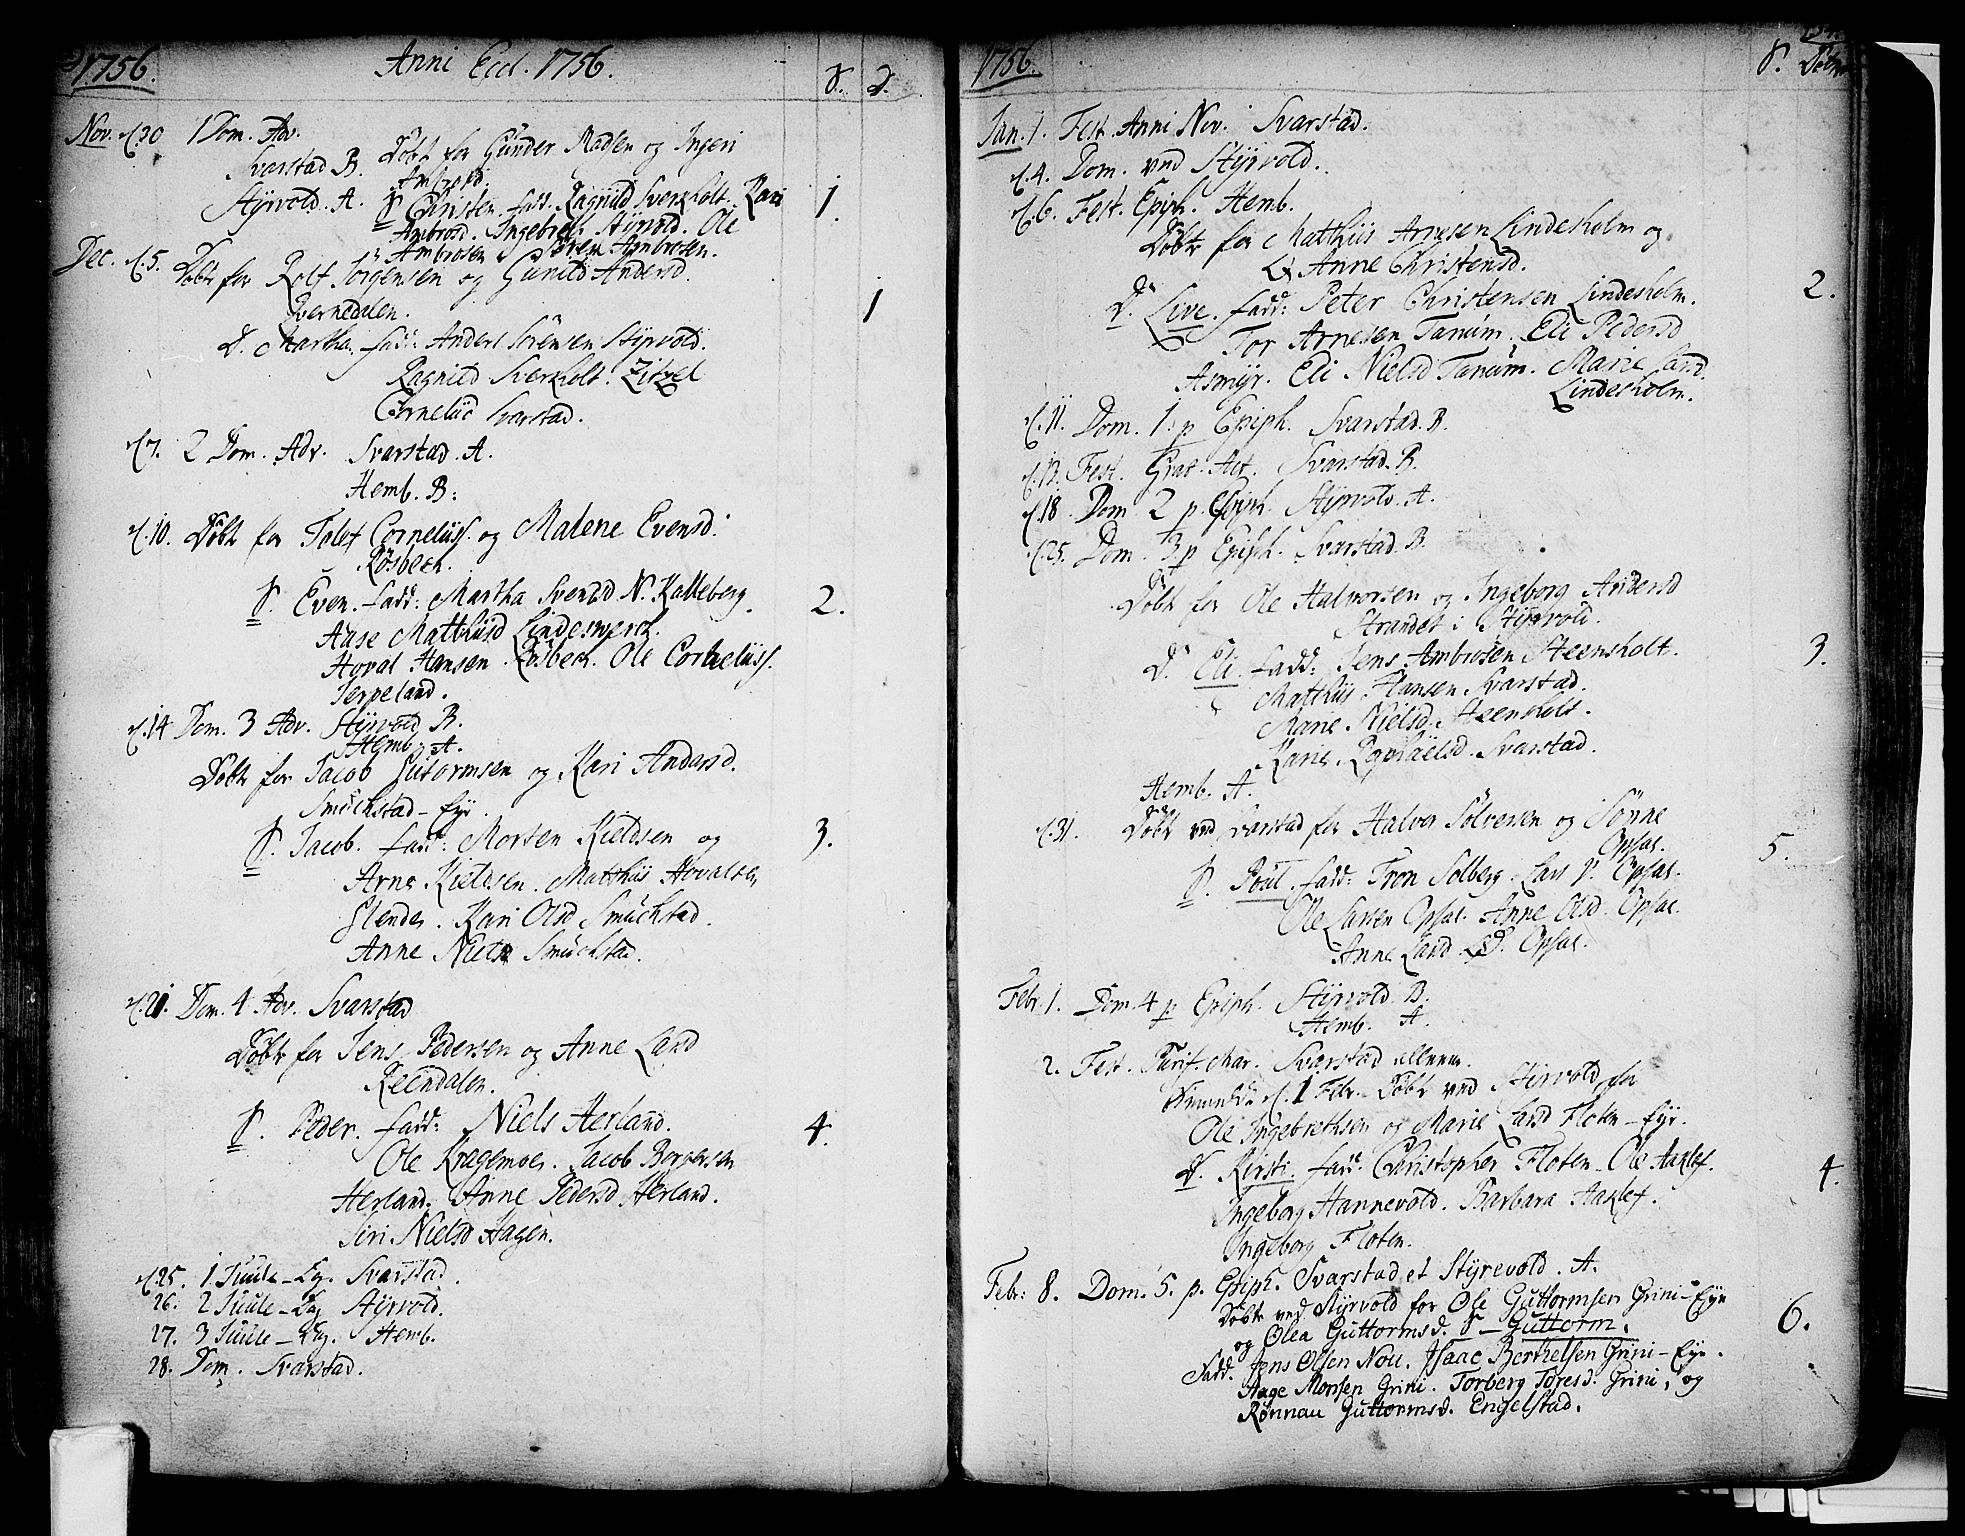 1756. Anni Eccl. 1756. S. D.
Nov. d. 30 1 Dom. Adv.
Svarstad B. Döbt for Gunder Madsen og Ingeri
Ambrosd.
Styrvold. A. S Christen. fadd. Ragnild Sverkholt. Kari 1.
Ambrosd. Ingebreth Styrvold. Ole
Ambrosen Sören Ambrosen.
Dec. d. 5. Döbt for Rolf Jörgensen og Gunild Andersd.
Qvernedalen. 1
D. Martha. fadd: Anders Sörensen Styrvold.
Ragnild Sverkholt. Zitzel
Corneliid Svarstad.
d. 7. 2 Dom. Adv. Svarstad. A.
Hemb. B:
d. 10. Döbt for Tolef Corneliiss. og Malene Evensd:
Rösbech.
S. Even. fadd: Martha Svensd N. Kalleberg. 2.
Aase Matthiisd Lindeswerch.
Hoval Hansen Rösbech. Ole Corneliiss.
Jerpeland.
d. 14 Dom. 3 Adv. Styrvold B.
Hemb. A.
Döbt for Jacob Gutormsen og Kari Andersd.
Smuchstad-Eye.
S. Jacob. fadd: Morten Kieldsen og 3.
Arne Kieldsen. Matthiis Hovalsen
Glender. Kari Olsd Smuchstad.
Anne Niels Smuchstad.
d. 21. Dom. 4. Adv. Svarstad
Döbt for Jens Pedersen og Anne Larsd
Reendalen.
S. Peder. fadd: Niels Herland. 4.
Ole Kragemoe. Jacob Borgersen
Herland. Anne Pedersd Herland.
Siri Nielsd Hagen.
d. 25. 1 Juule-Dg. Svarstad.
26. 2 Juule-Dag Styrvold.
27. 3 Juule-Dag. Hemb.
28. Dom. Svarstad.
1756. S. Döbtr
Jan. 1. Fest. Anni Nov. Svarstad.
d. 4. Dom. ved Styrvold.
d. 6. Fest. Epiph. Hemb.
Döbt for Matthiis Arnesen Lindesholm og
Anne Christensd.
D. Live. fadd: Peter Christensen Lindesholm. 2.
Tor Arnesen Tanum. Eli Pedersd
Asmyr. Eli Nielsd Tanum. Marie Larsd.
Lindesholm.
d. 11. Dom. 1. p Epiph. Svarstad. B.
d. 13. Fest. Grat. Act. Svarstad. B.
d. 18 Dom 2 p. Epiph. Styrvold. A.
d. 25. Dom. 3 p Epiph. Svarstad. B.
Döbt for Ole Halvorsen og Ingeborg Andersd
Strandet i Styrvold.
D. Eli. fadd: Jens Ambrosen Steensholt. 3.
Matthiis Hansen Svarstad.
Marie Nielsd. Steensholt.
Karie Raphaelsd. Svarstad.
Hemb. A.
d. 31. Döbt ved Svarstad for Halvor Sölvesen og Sönne
Opsal. 5.
S. Poul. fadd: Tron Solberg. Lars P. Opsal.
Ole Larsen Opsal. Anne Olsd. Opsal.
Anne Larsd. Opsal.
Febr. 1. Dom. 4 p Epiph. Styrvold. B.
Hemb. A.
2. Fest. Purif. Mar. Svarstad allene.
d. 1 Febr. Döbt ved Styrvold for
Ole Ingebrethsen og Marie Larsd Floten-Eye.
D. Kirsti. fadd. Christopher Floten. Ole Aaklef. 4.
Ingeborg Hannevold. Barbara Aaklef.
Ingeborg Floten.
Febr: 8. Dom. 5. p. Epiph. Svarstad et Styrevold. A.
Döbt ved Styrvold for Ole Guttormsen Grini-Eye
og Olea Guttormsd. S-Guttorm. 6.
Fadd. Jens Olsen Nou. Isaac Berthelsen Grini-Eye.
Aage Monsen Grini. Torberg Toresd. Grini, og
Rönnau Guttormsd. Engelstad.